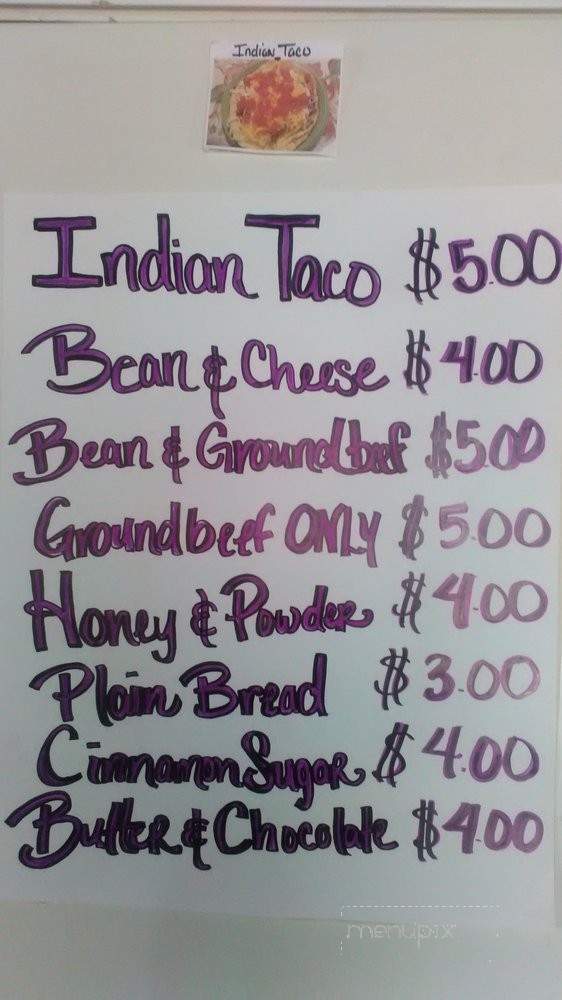 Indian Taco
Indian Taco $5.00
Bean & Cheese $4.00
Bean & Groundbeef $5.00
Groundbeef ONLY $5.00
Honey & Powder $4.00
Plain Bread $3.00
Cinnamon Sugar $4.00
Butter & Chocolate $4.00
menupix